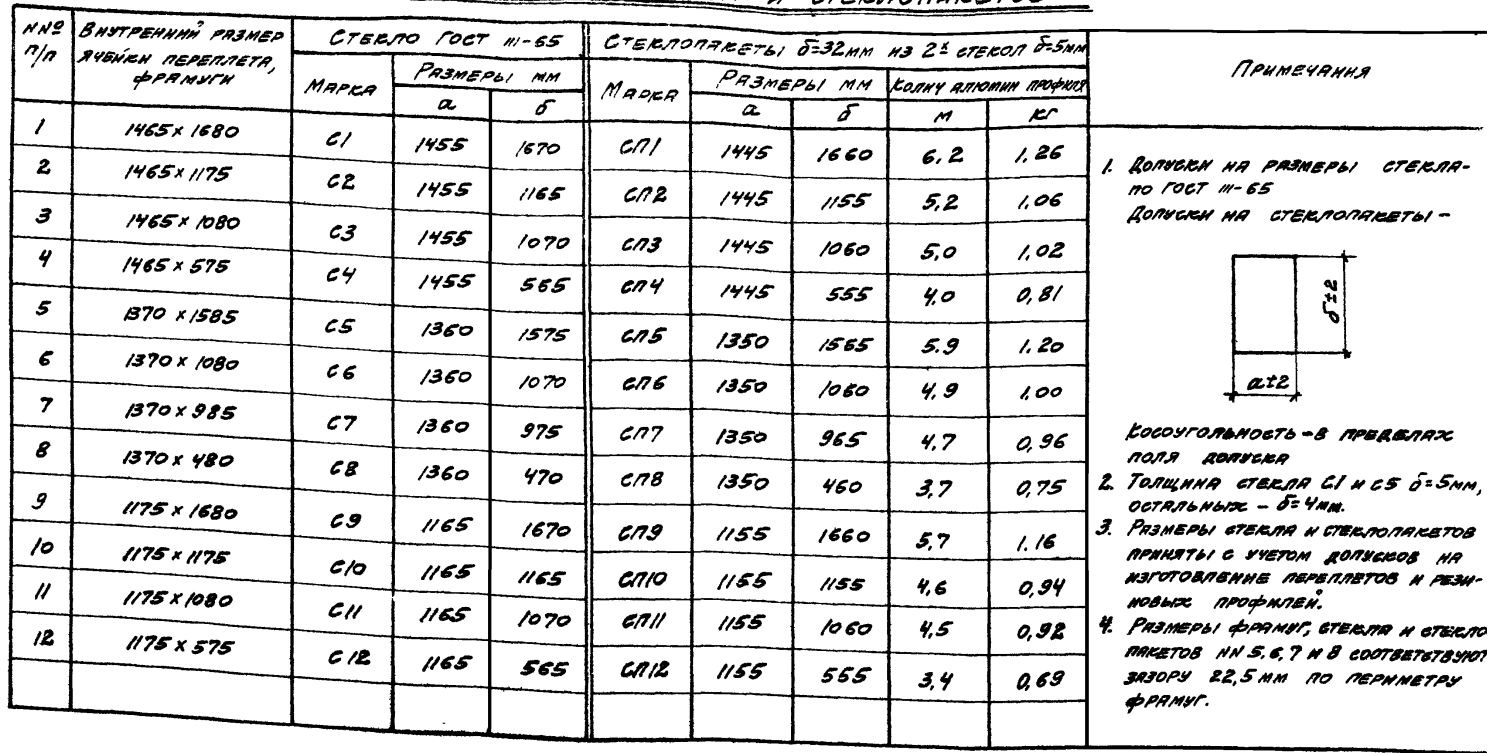 и стеклопакетов
ННº п/п | Внутренний размер ячейки переплета, фрамуги | Стекло ГОСТ 111-65 | Стеклопакеты δ=32мм из 2х стекол δ=5мм | Примечания
Марка | Размеры мм | Марка | Размеры мм | Колич алюмин профиля
а | б | а | б | м | кг
1 | 1465×1680 | С1 | 1455 | 1670 | СП1 | 1445 | 1660 | 6,2 | 1,26
2 | 1465×1175 | С2 | 1455 | 1165 | СП2 | 1445 | 1155 | 5,2 | 1,06
3 | 1465×1080 | С3 | 1455 | 1070 | СП3 | 1445 | 1060 | 5,0 | 1,02
4 | 1465×575 | С4 | 1455 | 565 | СП4 | 1445 | 555 | 4,0 | 0,81
5 | 1370×1585 | С5 | 1360 | 1575 | СП5 | 1350 | 1565 | 5.9 | 1.20
6 | 1370×1080 | С6 | 1360 | 1070 | СП6 | 1350 | 1060 | 4,9 | 1,00
7 | 1370×985 | С7 | 1360 | 975 | СП7 | 1350 | 965 | 4,7 | 0,96
8 | 1370×480 | С8 | 1360 | 470 | СП8 | 1350 | 460 | 3,7 | 0,75
9 | 1175×1680 | С9 | 1165 | 1670 | СП9 | 1155 | 1660 | 5,7 | 1.16
10 | 1175×1175 | С10 | 1165 | 1165 | СП10 | 1155 | 1155 | 4,6 | 0,94
11 | 1175×1080 | С11 | 1165 | 1070 | СП11 | 1155 | 1060 | 4,5 | 0,92
12 | 1175×575 | С12 | 1165 | 565 | СП12 | 1155 | 555 | 3,4 | 0,69
1. Допуски на размеры стекла-
по ГОСТ 111-65
Допуски на стеклопакеты -
б±2
а±2
Косоугольность - в пределах
поля допуска
2. Толщина стекла С1 и С5 δ=5мм,
остальных - δ=4мм.
3. Размеры стекла и стеклопакетов
приняты с учетом допусков на
изготовление переплетов и рези-
новых профилей.
4. Размеры фрамуг, стекла и стекло
пакетов НН 5,6,7 и 8 соответствуют
зазору 22,5 мм по периметру
фрамуг.